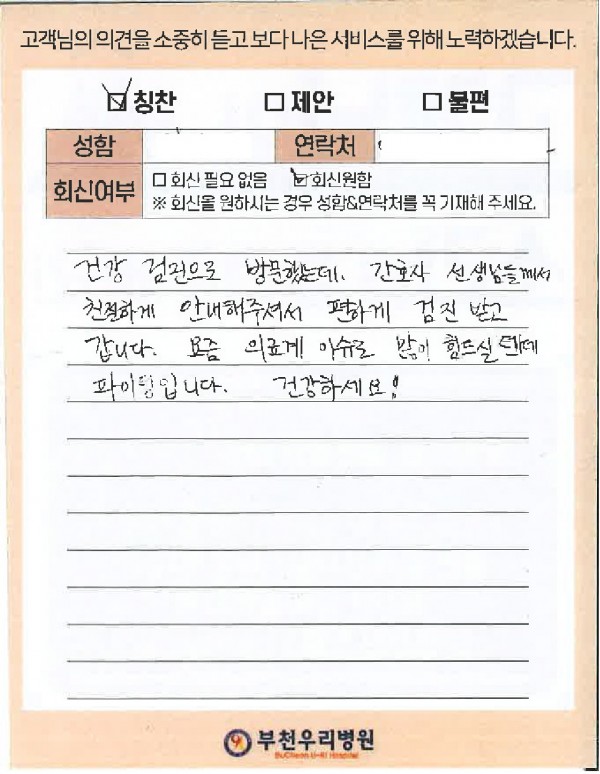 고객님의 의견을 소중히 듣고 보다 나은 서비스를 위해 노력하겠습니다.
☑ 칭찬 ☐ 제안 ☐ 불편
성함 연락처
회신여부 ☐ 회신 필요 없음 ☑ 회신원함
※ 회신을 원하시는 경우 성함&연락처를 꼭 기재해 주세요.
건강 검진으로 방문했는데, 간호사 선생님들께서
친절하게 안내해주셔서 편하게 검진 받고
갑니다. 요즘 의료계 이슈로 많이 힘드실텐데
파이팅입니다. 건강하세요!
부천우리병원
BuCheon U-RI Hospital